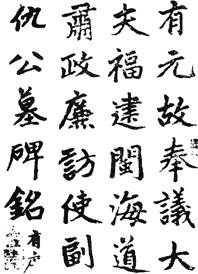 有元故奉議大
夫福建閩海道
肅政廉訪使副
仇公墓碑銘有序